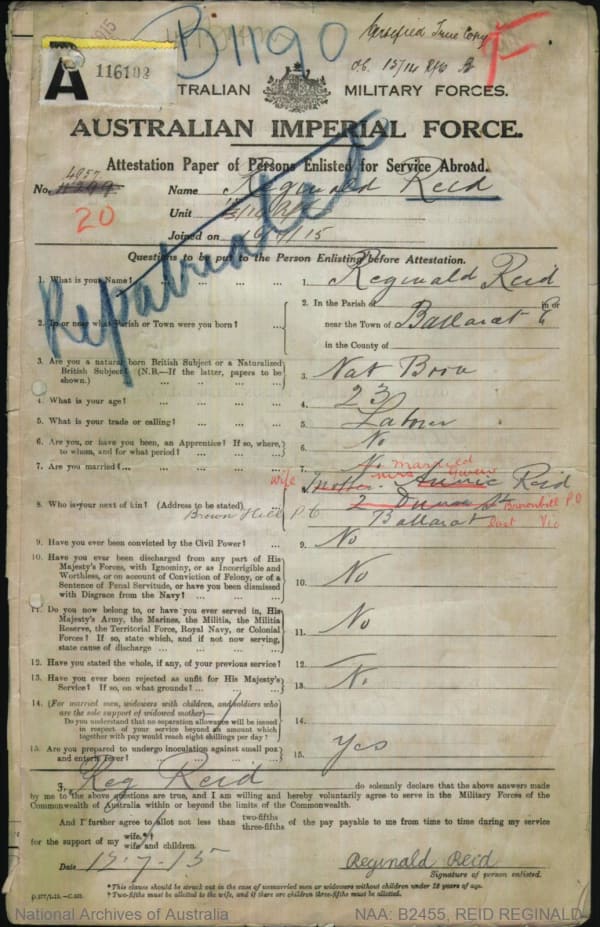 B1190
Certified True Copy
1915
A 116102
F
AUSTRALIAN MILITARY FORCES.
AUSTRALIAN IMPERIAL FORCE.
Attestation Paper of Persons Enlisted for Service Abroad.
4957
No. 4299 Name Reginald Reid
20
Unit
Joined on 15/7/15
Repatriated
Questions to be put to the Person Enlisting before Attestation.
1. What is your Name? ... ... ... ... 1. Reginald Reid
2. In or near what Parish or Town were you born? ... 2. In the Parish of in or
near the Town of Ballarat E
in the County of
3. Are you a natural born British Subject or a Naturalized
British Subject? (N.B.—If the latter, papers to be
shown.) ... ... ... ... 3. Nat Born
4. What is your age? ... ... ... ... 4. 23
5. What is your trade or calling? ... ... ... 5. Labourer
6. Are you, or have you been, an Apprentice? If so, where,
to whom, and for what period? ... ... ... 6. No
7. Are you married? ... ... ... ... 7. No married
8. Who is your next of kin? (Address to be stated) ... 8. wife Mother Mrs Annie Reid
2 St Brownhill P.O
Brown Hill P.O Ballarat East Vic
9. Have you ever been convicted by the Civil Power? ... 9. No
10. Have you ever been discharged from any part of His
Majesty's Forces, with Ignominy, or as Incorrigible and
Worthless, or on account of Conviction of Felony, or of a
Sentence of Penal Servitude, or have you been dismissed
with Disgrace from the Navy? ... ... ... 10. No
11. Do you now belong to, or have you ever served in, His
Majesty's Army, the Marines, the Militia, the Militia
Reserve, the Territorial Force, Royal Navy, or Colonial
Forces? If so, state which, and if not now serving,
state cause of discharge ... ... ... ... 11. No
12. Have you stated the whole, if any, of your previous service? 12.
13. Have you ever been rejected as unfit for His Majesty's
Service? If so, on what grounds? ... ... ... 13. No
14. (For married men, widowers with children, and soldiers who
are the sole support of widowed mother)—
Do you understand that no separation allowance will be issued
in respect of your service beyond an amount which
together with pay would reach eight shillings per day? 14.
15. Are you prepared to undergo inoculation against small pox
and enteric fever? ... ... ... ... 15. Yes
I, Reg Reid do solemnly declare that the above answers made
by me to the above questions are true, and I am willing and hereby voluntarily agree to serve in the Military Forces of the
Commonwealth of Australia within or beyond the limits of the Commonwealth.
And I further agree to allot not less than two-fifths three-fifths of the pay payable to me from time to time during my service
for the support of my wife.*† wife and children.
Date 15.7.15 Reginald Reid
Signature of person enlisted.
* This clause should be struck out in the case of unmarried men or widowers without children under 18 years of age.
† Two-fifths must be allotted to the wife, and if there are children three-fifths must be allotted.
National Archives of Australia NAA: B2455, REID REGINALD